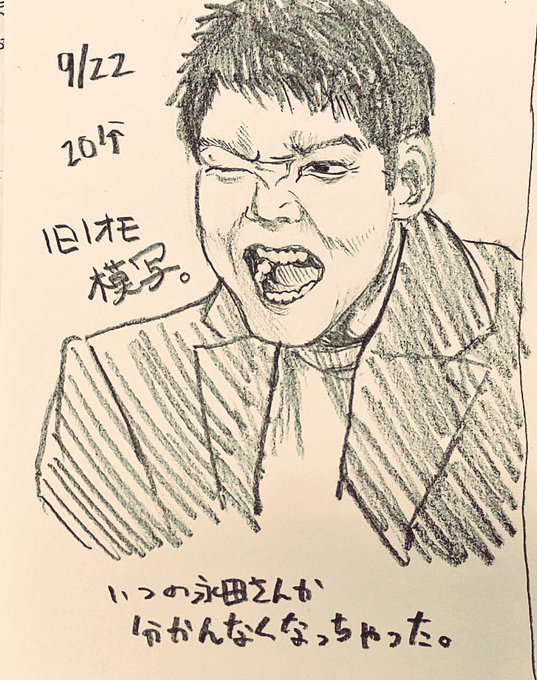 9/22
20分
1日1オモ
模写。
いつの永田さんか
分かんなくなっちゃった。